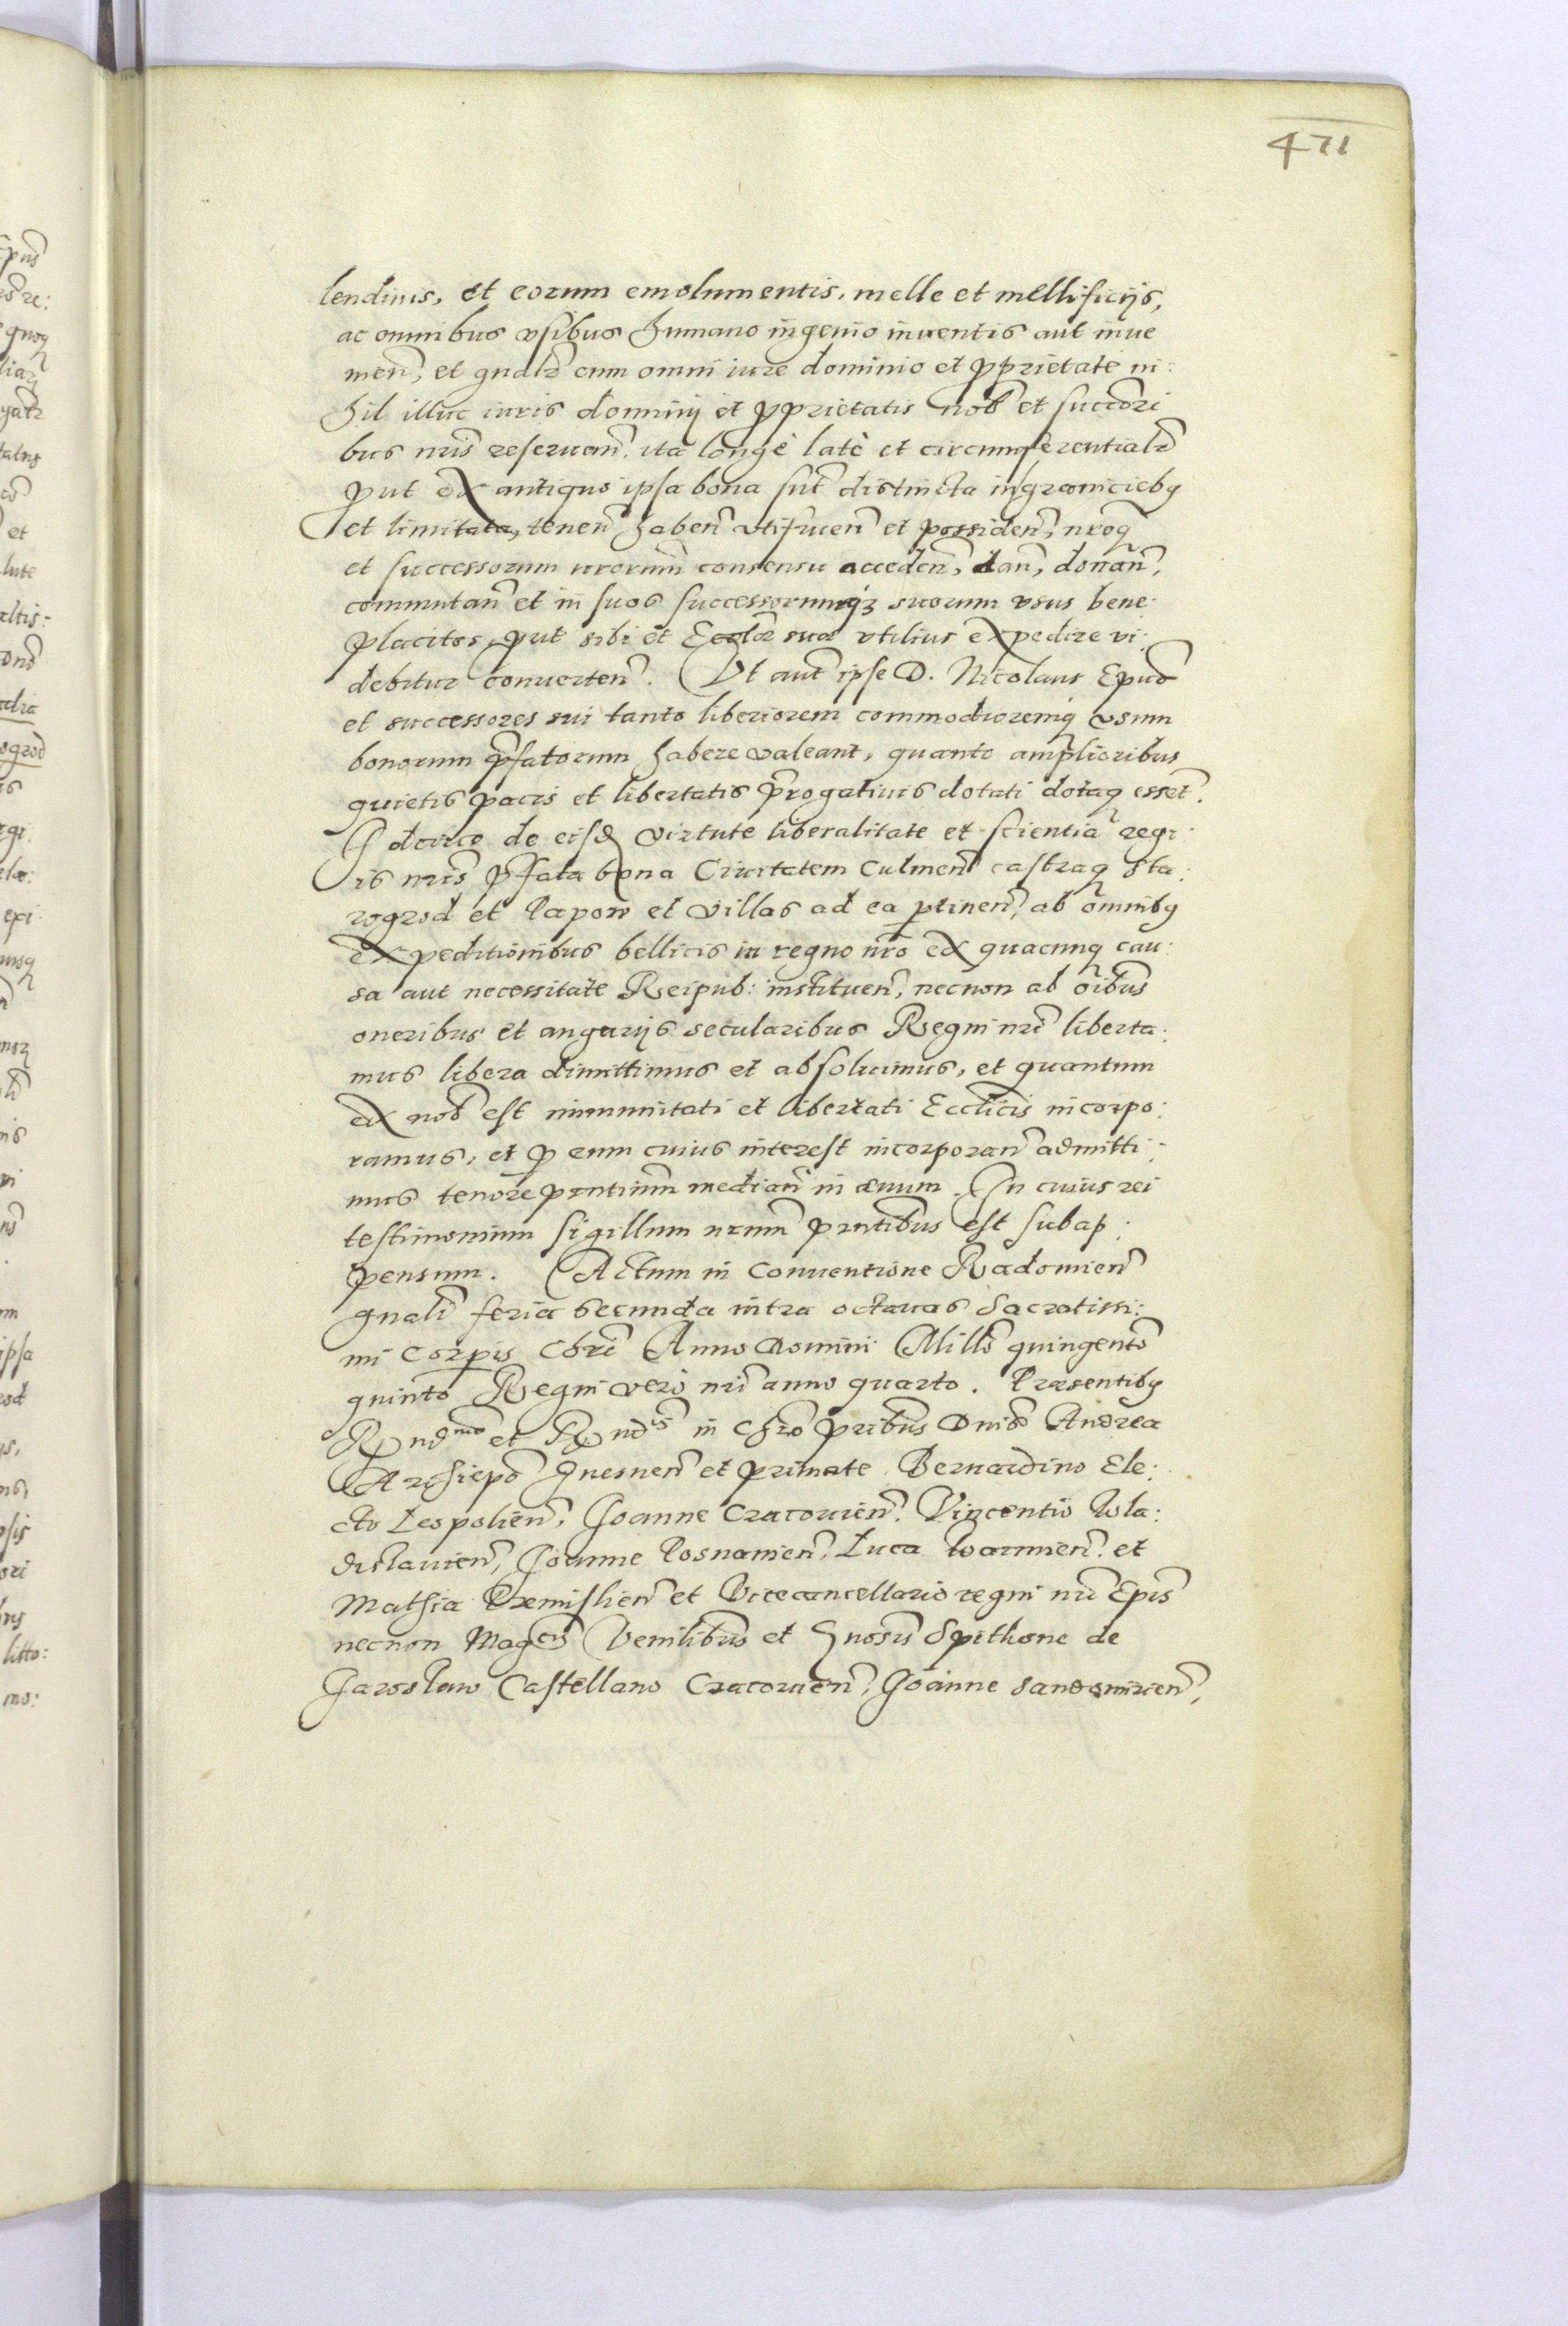 471
lendinis, et eorum emolumentis, melle et mellificijs,
ac omnibus vsibus humano ingenio inuentis aut inue
nien̄, et gnalr̄ cum omni iure dominio et ꝓprietate ni:
hil illuc iuris dominij et ꝓprietatis nob̄ et succōri
bus nr̄is reseruan̄. ita longè latè et circumferentialr̄
ꝓut ex antiquo ipsa bona sūt distincta in graniciebꝰ
et limitata, tenen̄ haben̄ vtifruen̄ et possiden̄, nr̄oq̄
et successorum nrorum̄ consensu acceden̄, dan̄, donan̄,
commutan̄ et in suos successorumqȝ suorum vsus bene
placitos, ꝓut sibi et Ecclǣ suæ vtilius expedire vi:
debitur conuerten̄. Vt aut̄ ipse D. Nicolaus Epūs
et successores sui tanto liberiorem commodioremq̄ vsum
bonorum p̄fatorum habere valeant, quanto amplioribus
quietis pacis et libertatis p̄rogatiuis dotati dotaq̄ esset̄.
Idcirco de eisd̄ virtute liberalitate et scientia regi:
is nr̄is p̄fata bona Ciuitatem Culmen̄ castraq̄ Sta:
rogrod et Papow et villas ad ea ꝑtinen̄, ab omnibꝰ
expeditionibus bellicis in regno nr̄o ex quacunq̄ cau:
sa aut necessitate Reipub: instituen̄, necnon ab oībus
oneribus et angarijs secularibus Regni nr̄i liberta:
mus libera dimittimus et absoluimus, et quantum
ex nob̄ est immunitati et libertati Ecclīcis incorpo:
ramus, et ꝑ eum cuius interest incorporan̄ admitti:
mus tenore pn̄tium median̄ in æuum. In cuius rei
testimonium sigillum nrum̄ pn̄tibus est subap:
pensum. Actum in Conuentione Radomien̄
gnali feria secunda intra octauas Sacratissi:
mi Corpis Chrī Anno Domini Millō quingentō
quinto Regni vero nr̄i anno quarto. Præsentibꝰ
Rn̄dmo et Rn̄dis in Chrō pr̄ibus Dnis Andrea
Archiepō Gnesnen̄ et primate Bernardino Ele:
cto Leopolien̄, Joanne Cracouien̄. Vincentio Wla:
dislauien̄, Joanne Posnanien̄, Luca Warmien̄. et
Mathia Premislien̄ et Vicecancellario regni nr̄i Epīs
necnon Magcis Venlibus et Gnosis Spithone de
Jaroslaw Castellano Cracouien̄, Joanne Sandomirien̄,